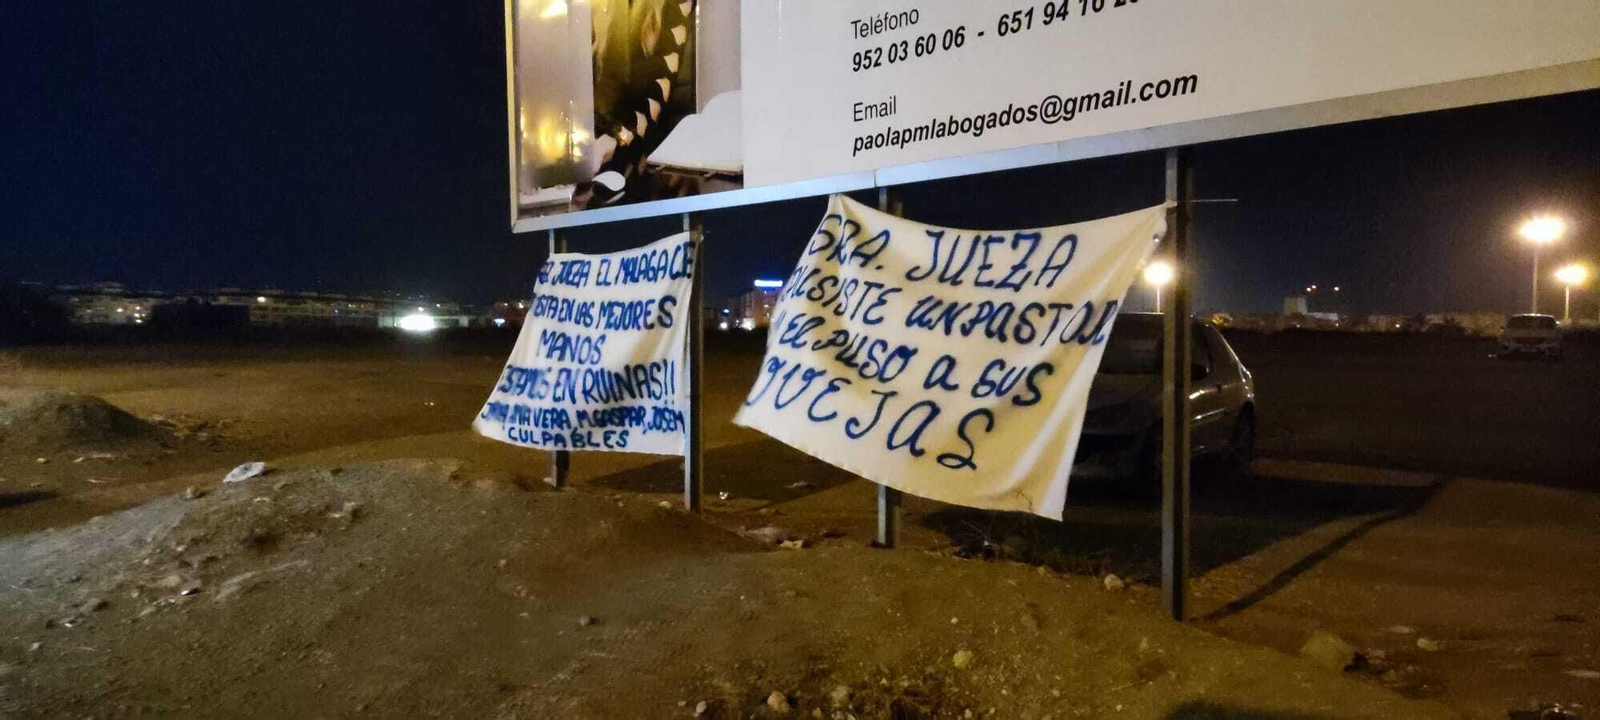 Teléfono
952 03 60 06 - 651 94 10
Email
paolapmlabogados@gmail.com
JUEZA EL MALAGA CF
ESTA EN LAS MEJORES
MANOS
ESTAMOS EN RUINAS!!
VERA, M.GASPAR, JOSEM
CULPABLES
SRA. JUEZA
PUSISTE UN PASTOR
Y EL PUSO A SUS
OVEJAS